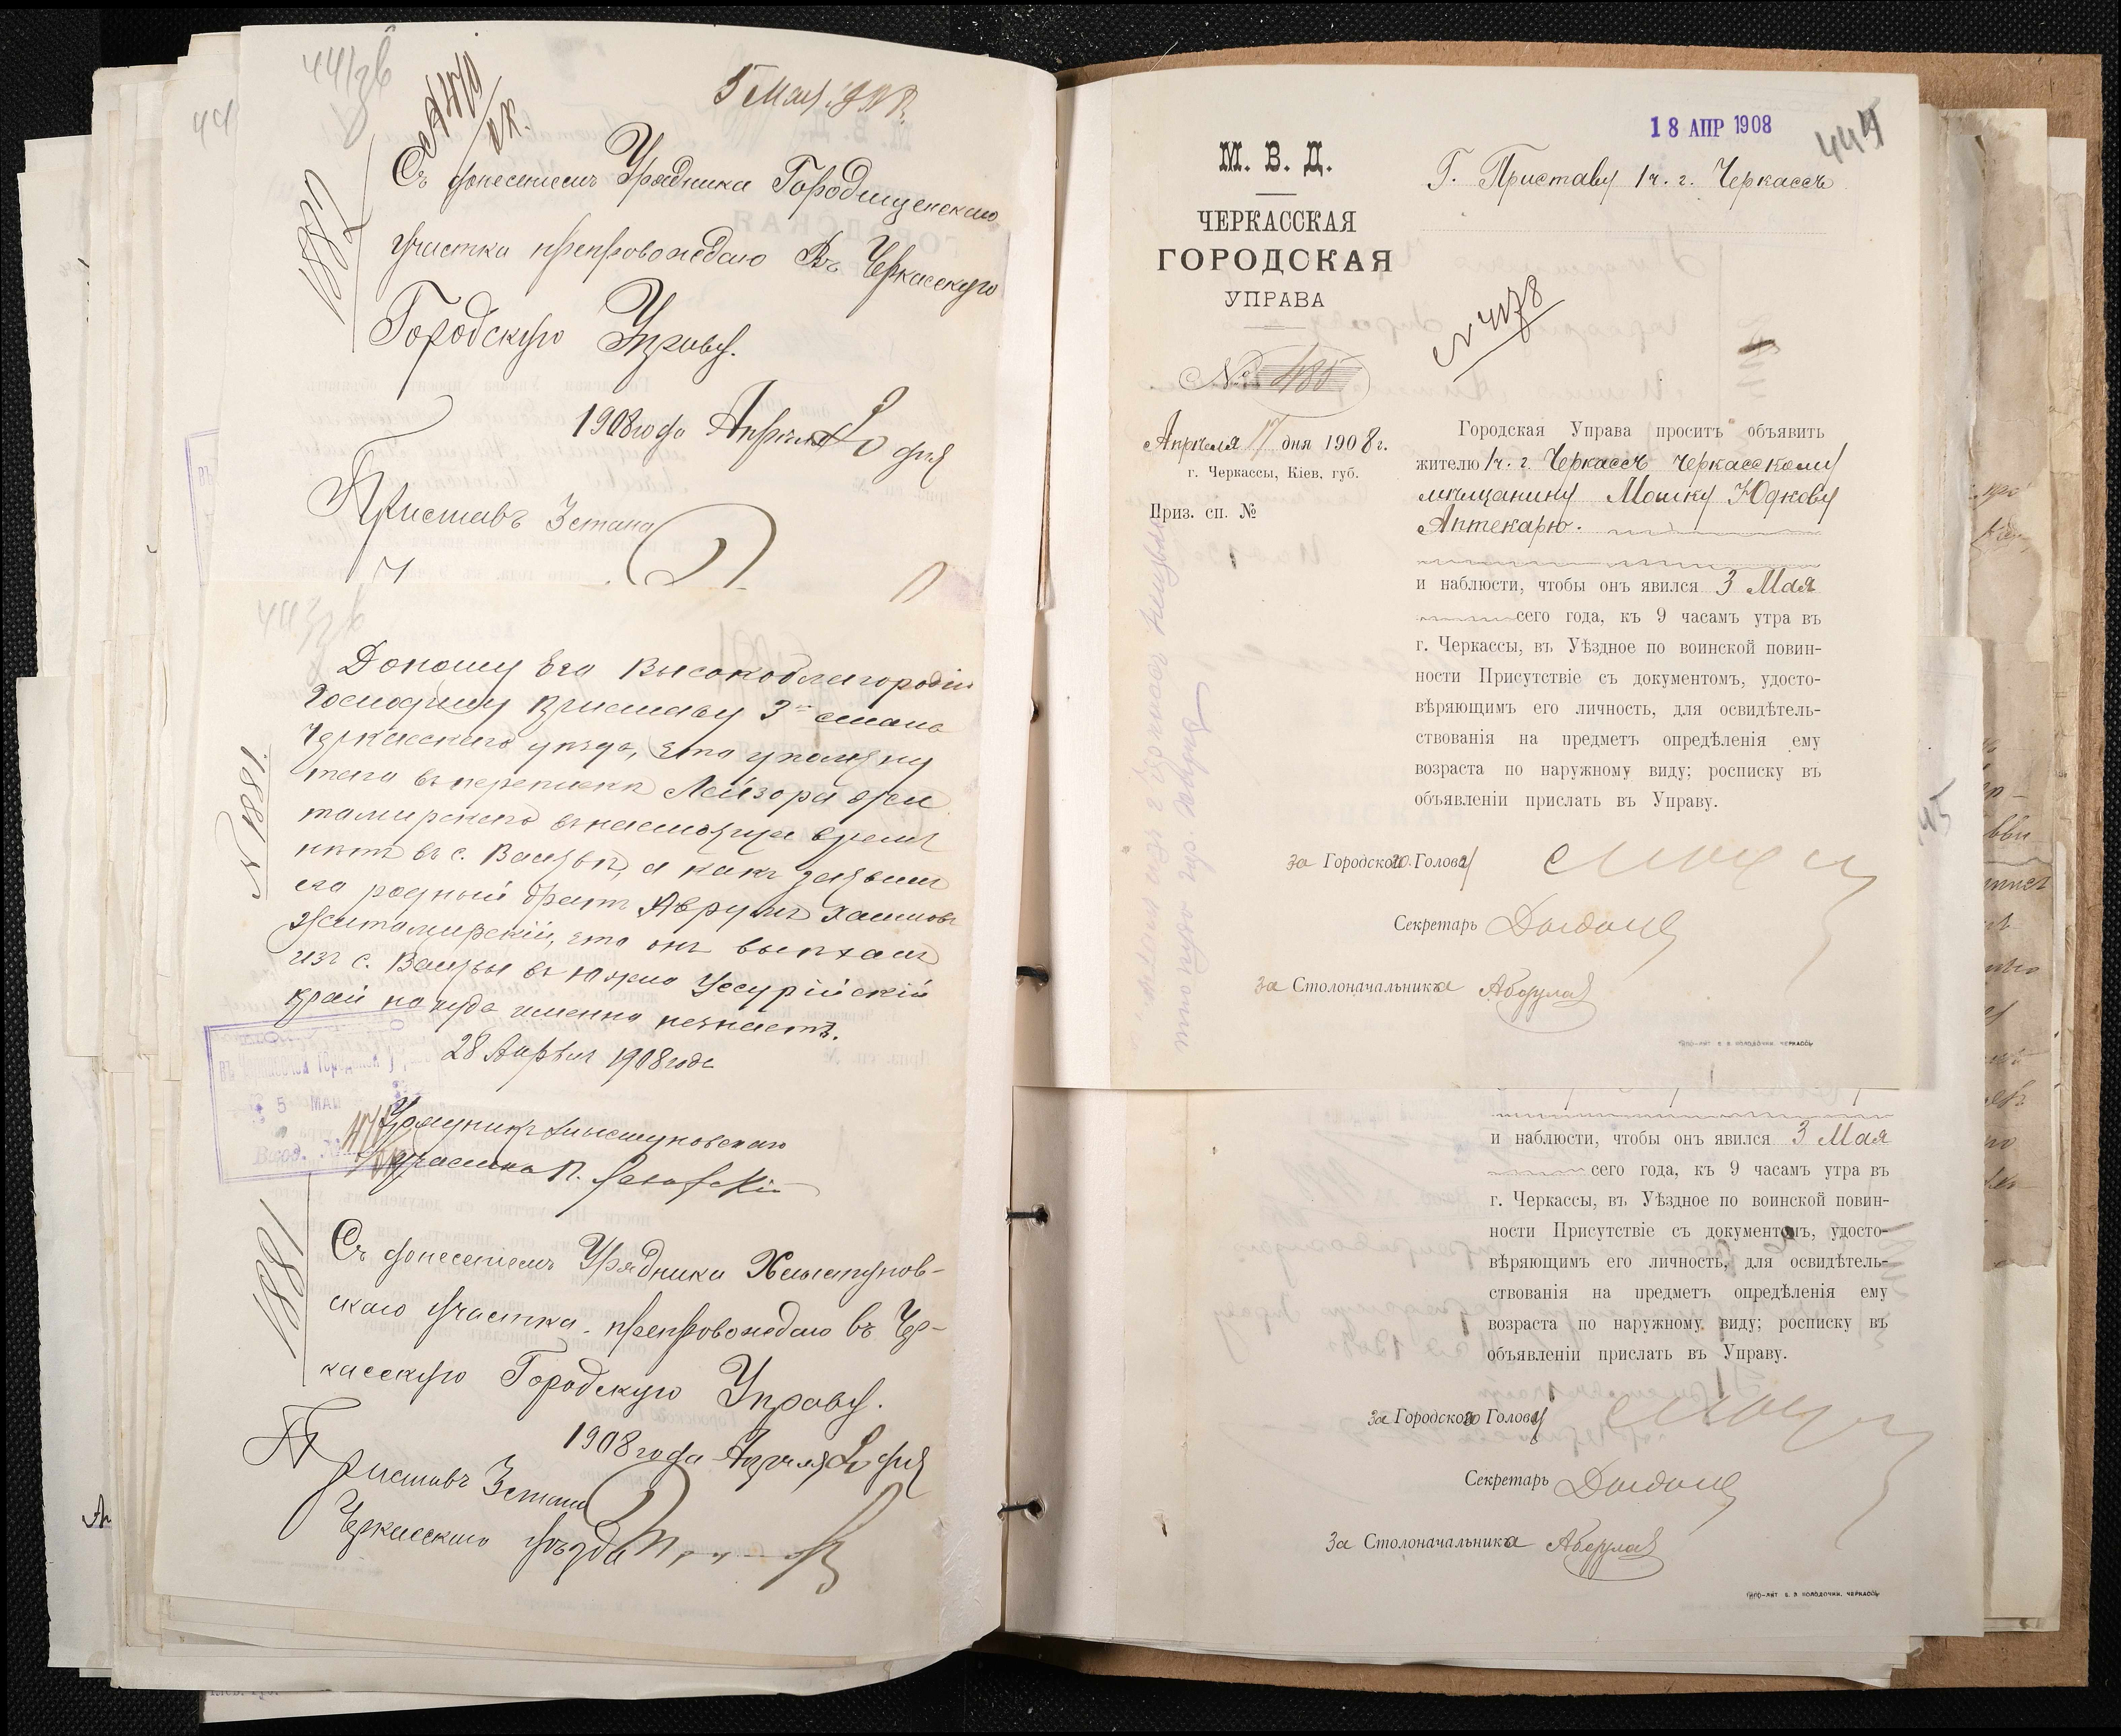 5 Мая
1882
Съ донесеніемъ Урядника Городищенскаго
участка препровождаю Въ Черкасскую
Городскую Управу.
1908 года Апрѣля дня
Приставъ 3 стана
Доношу Его Высокоблагородію
Господину Приставу 3го стана
Черкасскаго уѣзда, что упомяну
таго въ перепискѣ Лейзора Жи
томирскаго въ настоящее время
нѣтъ въ с. а какъ заявилъ
его родный братъ Аврумъ Хаимовъ
Житомирскій, что онъ выѣхалъ
изъ с. въ Южно Уссурійскій
край но куда именно незнаетъ.
28 Апрѣля 1908 года
№ 1881.
5 МАЙ
Вход. №
Урядникъ Хлыстуновскаго
участка П.
1881
Съ донесеніемъ Урядника Хлыстунов-
скаго участка препровождаю въ Чер-
касскую Городскую Управу.
1908 года Апрѣля дня
Приставъ 3 стана
Черкасскаго уѣзда
18 АПР 1908
М. В. Д.
ЧЕРКАССКАЯ
ГОРОДСКАЯ
УПРАВА
№ 485
Апрѣля 17 дня 1908 г.
г. Черкассы, Кіев. губ.
Приз. сп. №
Г. Приставу 1 ч. г. Черкассъ
№ 4178
Городская Управа проситъ объявить
жителю 1 ч. г. Черкассъ черкасскому
мѣщанину Мошку Юдкову
Аптекарю.
и наблюсти, чтобы онъ явился 3 Мая
сего года, къ 9 часамъ утра въ
г. Черкассы, въ Уѣздное по воинской повин-
ности Присутствіе съ документомъ, удосто-
вѣряющимъ его личность, для освидѣтель-
ствованія на предметъ опредѣленія ему
возраста по наружному виду; росписку въ
объявленіи прислать въ Управу.
за Городского Голову
Секретарь
за Столоначальника
и наблюсти, чтобы онъ явился 3 Мая
сего года, къ 9 часамъ утра въ
г. Черкассы, въ Уѣздное по воинской повин-
ности Присутствіе съ документомъ, удосто-
вѣряющимъ его личность, для освидѣтель-
ствованія на предметъ опредѣленія ему
возраста по наружному виду; росписку въ
объявленіи прислать въ Управу.
за Городского Голову
Секретарь
За Столоначальника